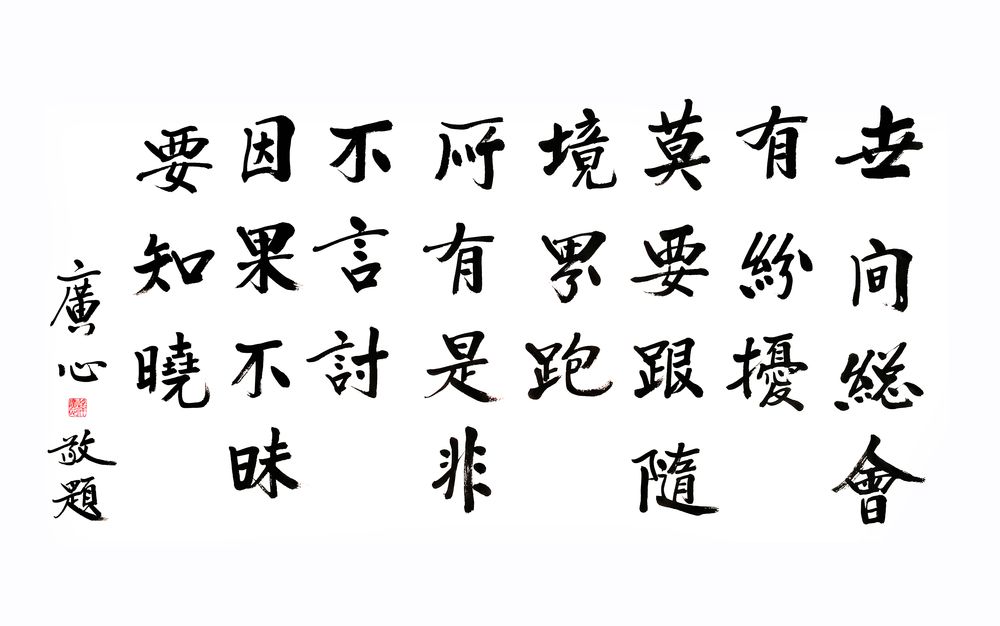 世间総會
有紛擾
莫要跟隨
境界跑
所有是非
不言討
因果不昧
要知曉
廣心
敬題